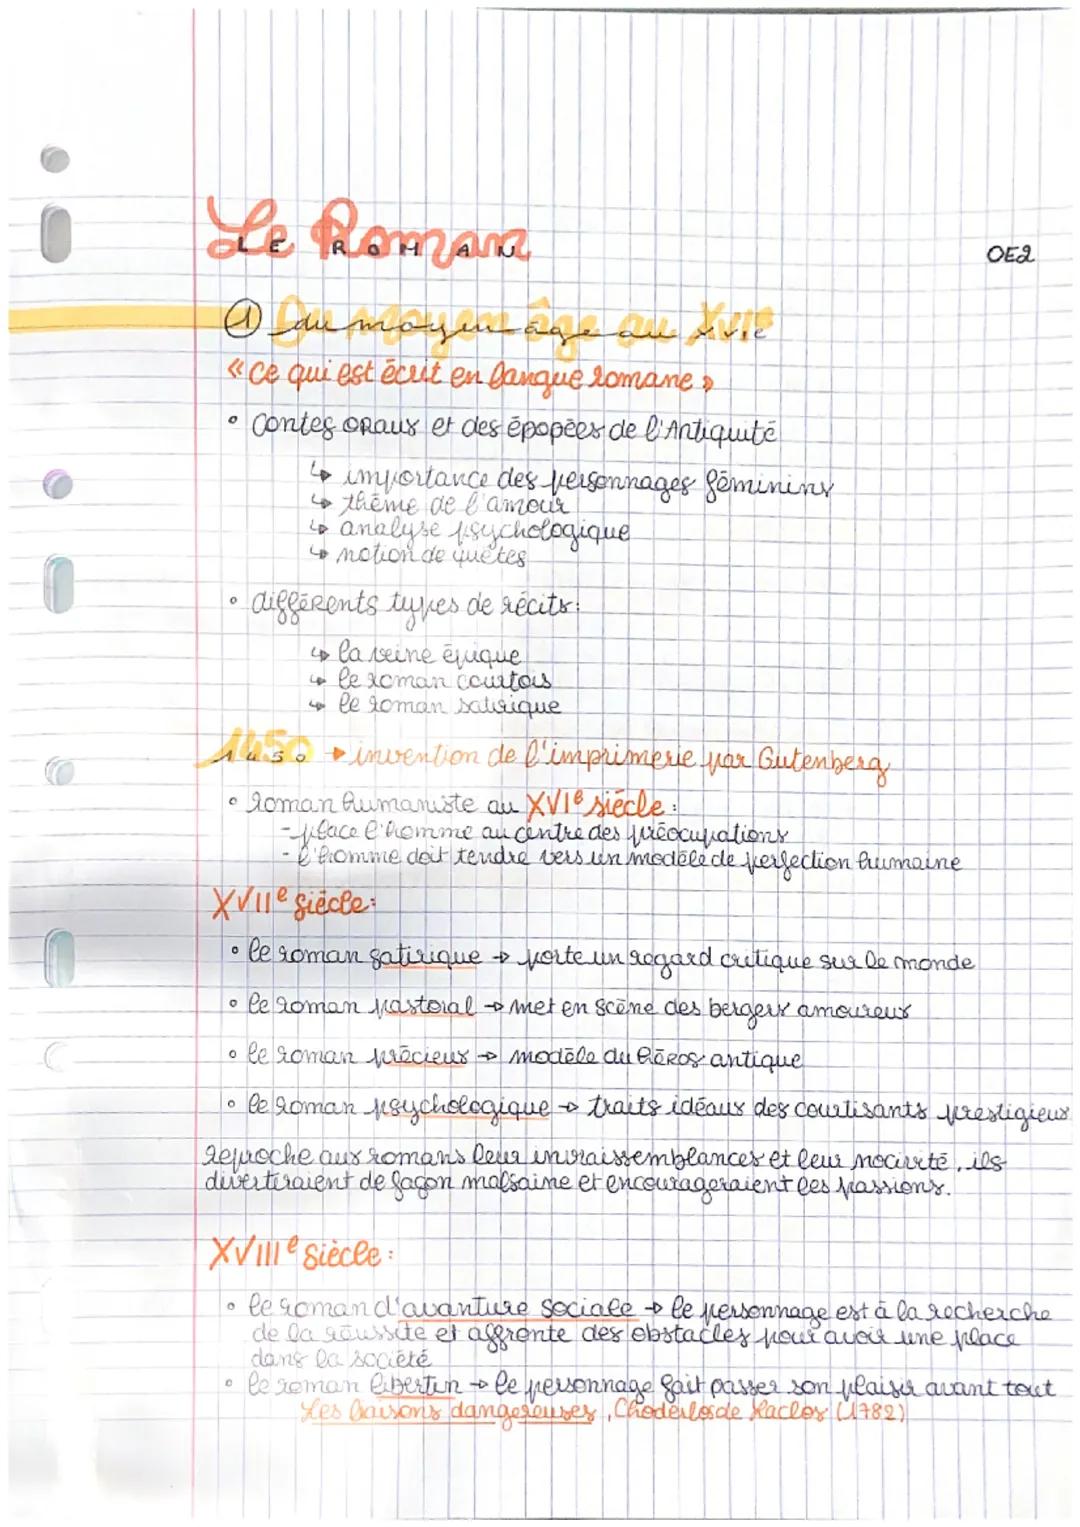 Le Roman
LE ROMAN
OE2
① Du moyen âge au XVIe
du moyen âge au XVIe
« Ce qui est écrit en langue romane »
• Contes oraux et des épopées de l'Antiquité
↳ importance des personnages féminins
↳ thème de l'amour
↳ analyse psychologique
↳ notion de quêtes
• différents types de récits:
↳ la veine épique
↳ le roman courtois
↳ le roman satirique
1450 → invention de l'imprimerie par Gutenberg
1450
• roman humaniste au XVIe siècle:
- place l'homme au centre des préocupations
- l'homme doit tendre vers un modèle de perfection humaine
XVIIe siècle:
• le roman satirique → porte un regard critique sur le monde
• le roman pastoral → met en scène des bergers amoureux
• le roman précieux → modèle du héros antique
• le roman psychologique → traits idéaux des courtisants prestigieux
reproche aux romans leur invraissemblances et leur nocivité, ils
divertiraient de façon malsaine et encourageraient les passions.
XVIIIe siècle:
• le roman d'avanture sociale → le personnage est à la recherche
de la réussite et affronte des obstacles pour avoir une place
dans la société
• le roman libertin → le personnage fait passer son plaisir avant tout
Les liaisons dangereuses, Choderlos de Laclos (1782)